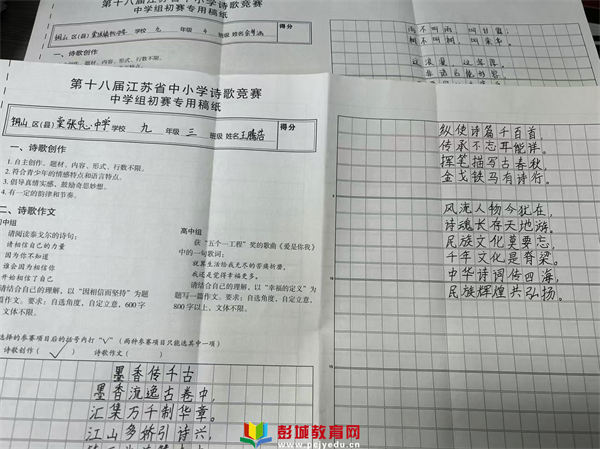 第十八届江苏省中小学诗歌竞赛
中学组初赛专用稿纸
铜山区(县) 学校 九 年级 班级 姓名
得分
一、诗歌创作
1.自主创作。题材、内容、形式、行数不限。
第十八届江苏省中小学诗歌竞赛
中学组初赛专用稿纸
铜山区(县)棠张中心中学学校 九 年级 三 班级 姓名王腾浩
得分
一、诗歌创作
1.自主创作。题材、内容、形式、行数不限。
2.符合青少年的情感特点和语言特点。
3.倡导真情实感，鼓励奇思妙想。
4.有一定的韵律和节奏。
二、诗歌作文
初中组
请阅读泰戈尔的诗句：
请相信自己的力量
因为你不知道
谁会因为相信你
开始相信了自己
请结合自己的理解，以“因相信而坚持”为题
写一篇作文。要求：自选角度，自定立意，600字
文体不限。
高中组
获“五个一工程”奖的歌曲《爱是你我》
中的一句歌词：
就算生活给我无尽的苦痛折磨，
我还是觉得幸福更多。
请结合自己的理解，以“幸福的定义”为
题写一篇作文。要求：自选角度，自定立意，
800字以上，文体不限。
选择的参赛项目后的括号内打“√”（两种参赛项目只能选其中一项）
诗歌创作（√） 诗歌作文（ ）
墨香传千古
墨香流逸古卷中，
汇集万千制华章。
江山多娇引诗兴，
纵使诗篇千百首，
传承不忘耳能详。
挥笔描写古春秋，
金戈铁马有诗行。
风流人物今犹在，
诗魂长存天地游。
民族文化莫要忘，
千年文化是脊梁。
中华诗词传四海，
民族辉煌共弘扬。
彭城教育网
www.pcjyedu.cn